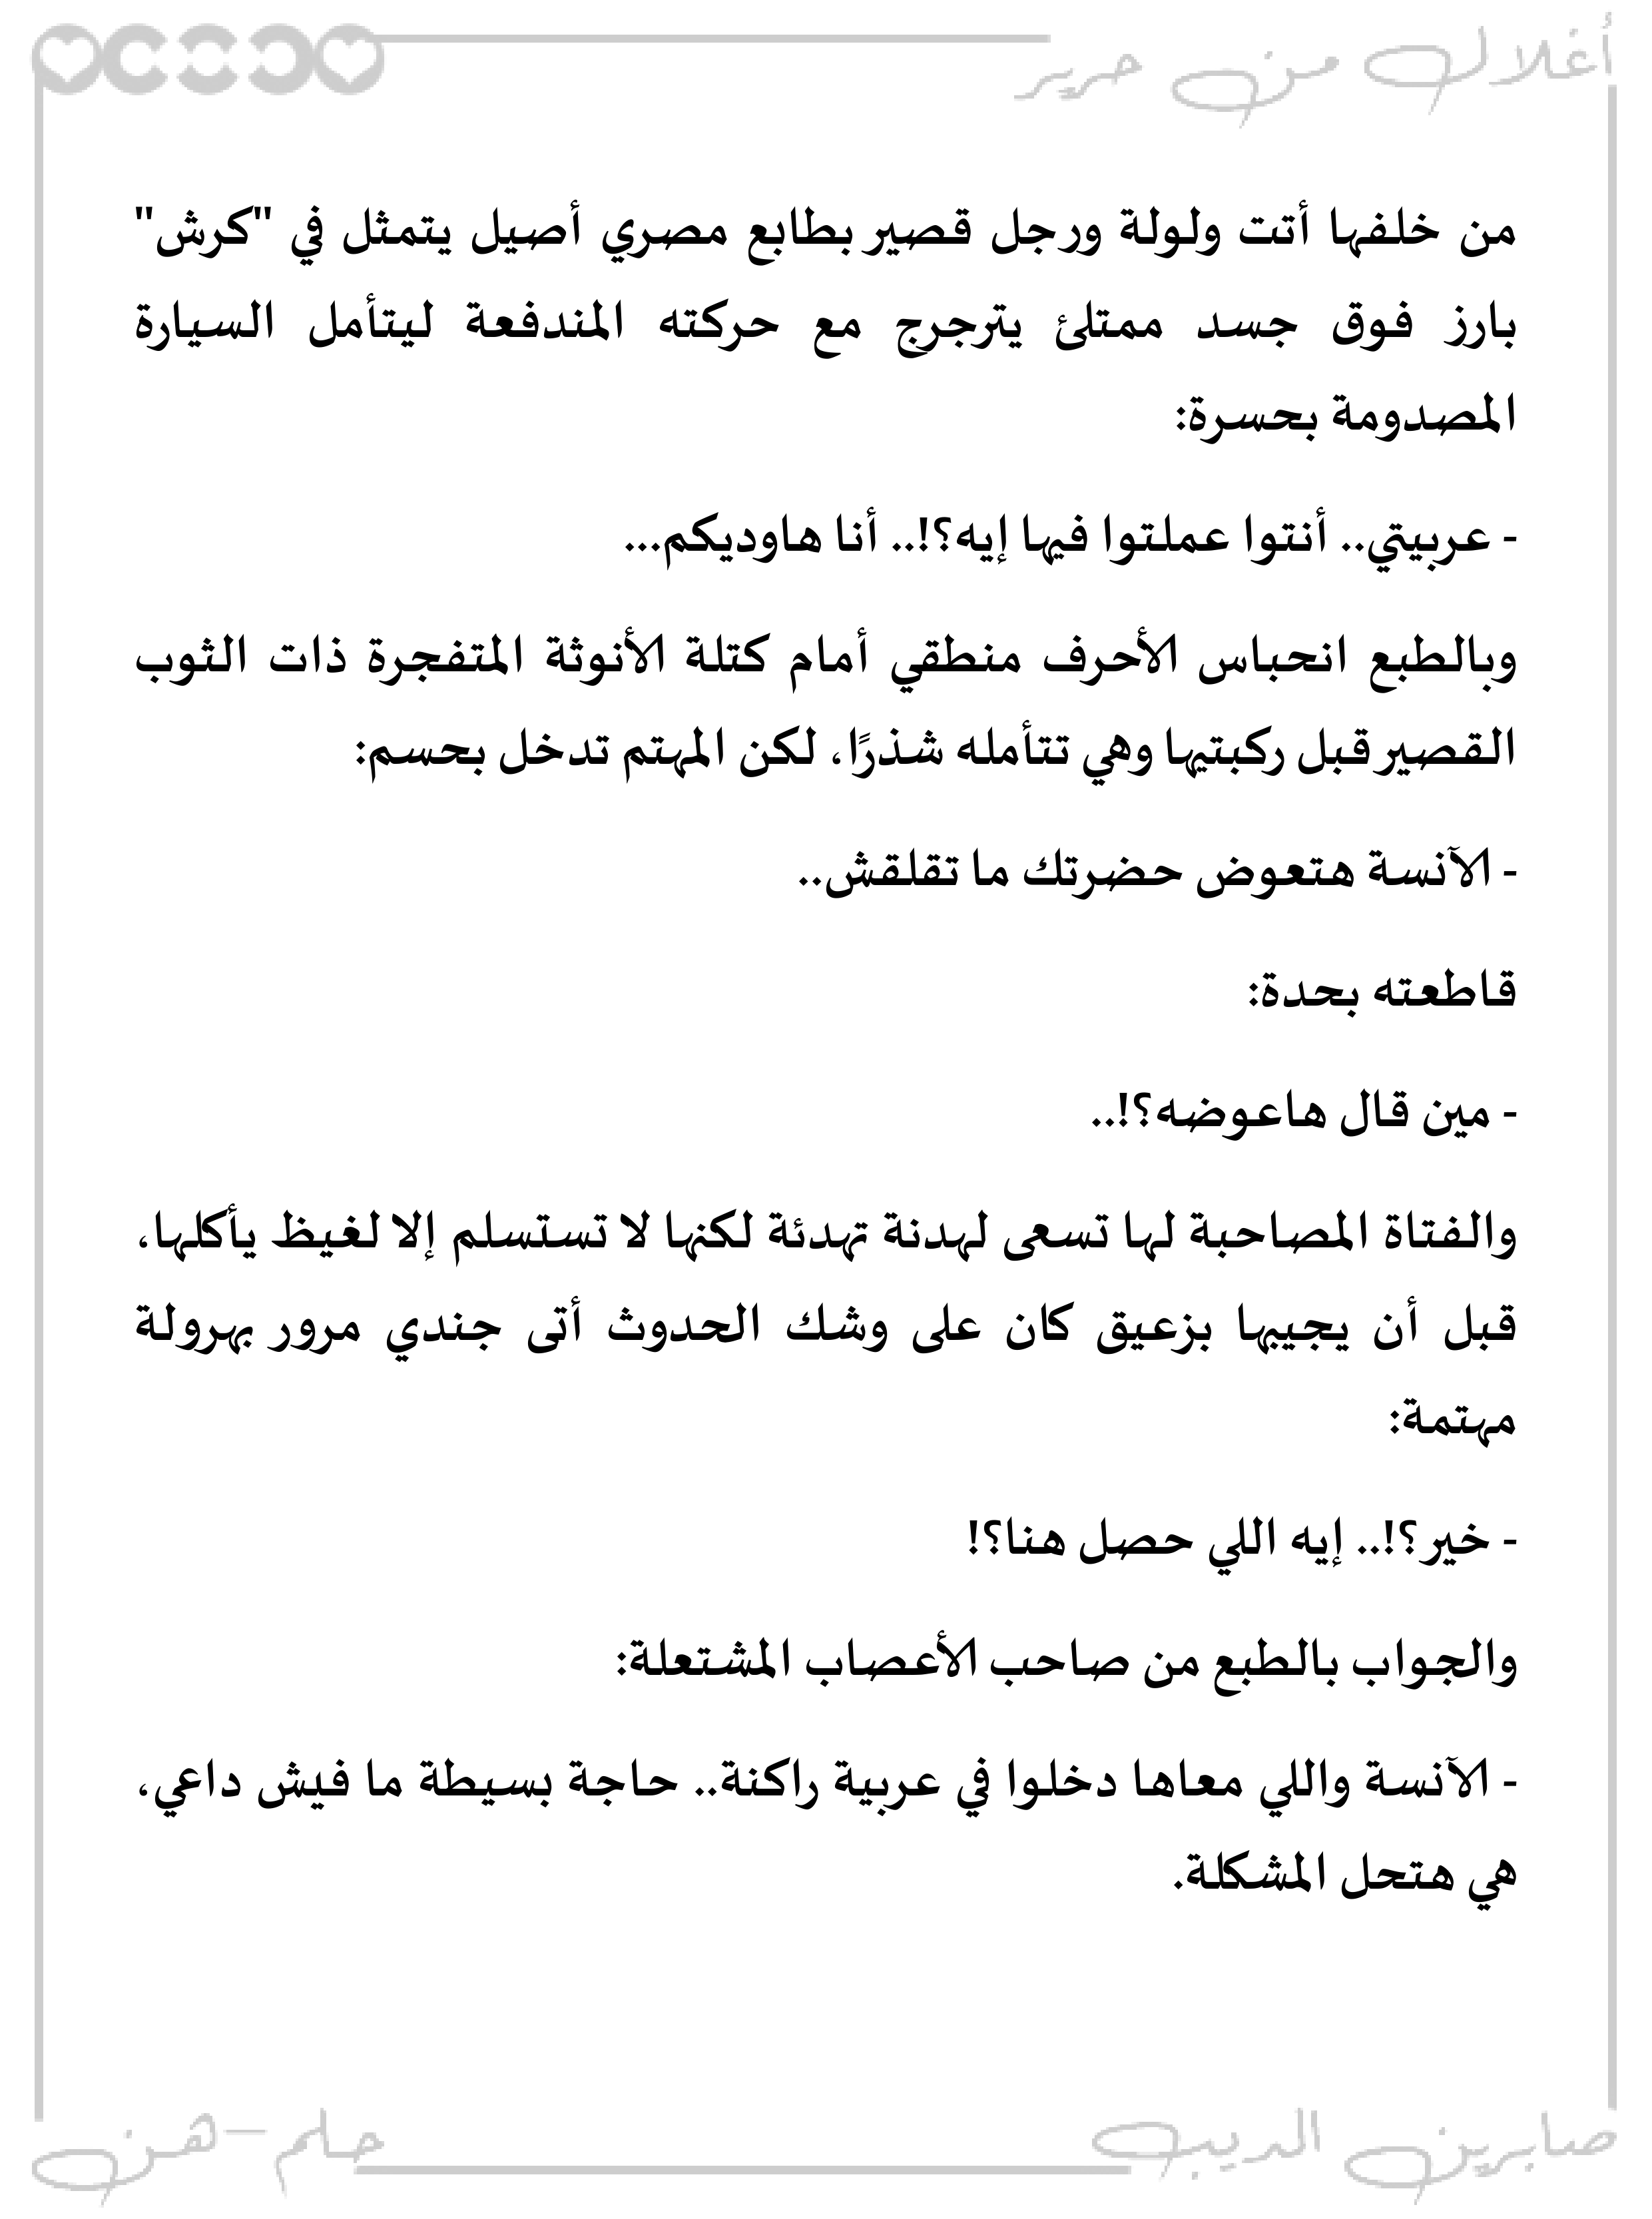 أغلال من حرير
من خلفها أتت ولولة ورجل قصير بطابع مصري أصيل يتمثل في "كرش"
بارز فوق جسد ممتلئ يترجرج مع حركته المندفعة ليتأمل السيارة
المصدومة بحسرة:
- عربيتي.. أنتوا عملتوا فيها إيه؟!.. أنا هاوديكم...
وبالطبع انحباس الأحرف منطقي أمام كتلة الأنوثة المتفجرة ذات الثوب
القصير قبل ركبتيها وهي تتأمله شذرًا، لكن المهتم تدخل بحسم:
- الآنسة هتعوض حضرتك ما تقلقش..
قاطعته بحدة:
- مين قال هاعوضه؟!..
والفتاة المصاحبة لها تسعى لهدنة تهدئة لكنها لا تستسلم إلا لغيظ يأكلها،
قبل أن يجيبها بزعيق كان على وشك الحدوث أتى جندي مرور بهرولة
مهتمة:
- خير؟!.. إيه اللي حصل هنا؟!
والجواب بالطبع من صاحب الأعصاب المشتعلة:
- الآنسة واللي معاها دخلوا في عربية راكنة.. حاجة بسيطة ما فيش داعي،
هي هتحل المشكلة.
صابرين الديب
حلم-هن